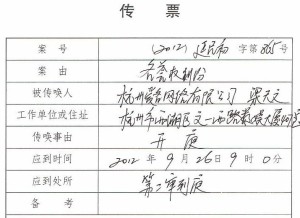 传 票
案 号 (2012) 民初 字第 865号
案 由 名誉权纠纷
被传唤人 杭州 网络有限公司 梁文文
工作单位或住址 杭州市西湖区文一西路 大厦
传唤事由 开 庭
应到时间 2012 年 9 月 26 日 9 时 0 分
应到处所 第二审判庭
备 考